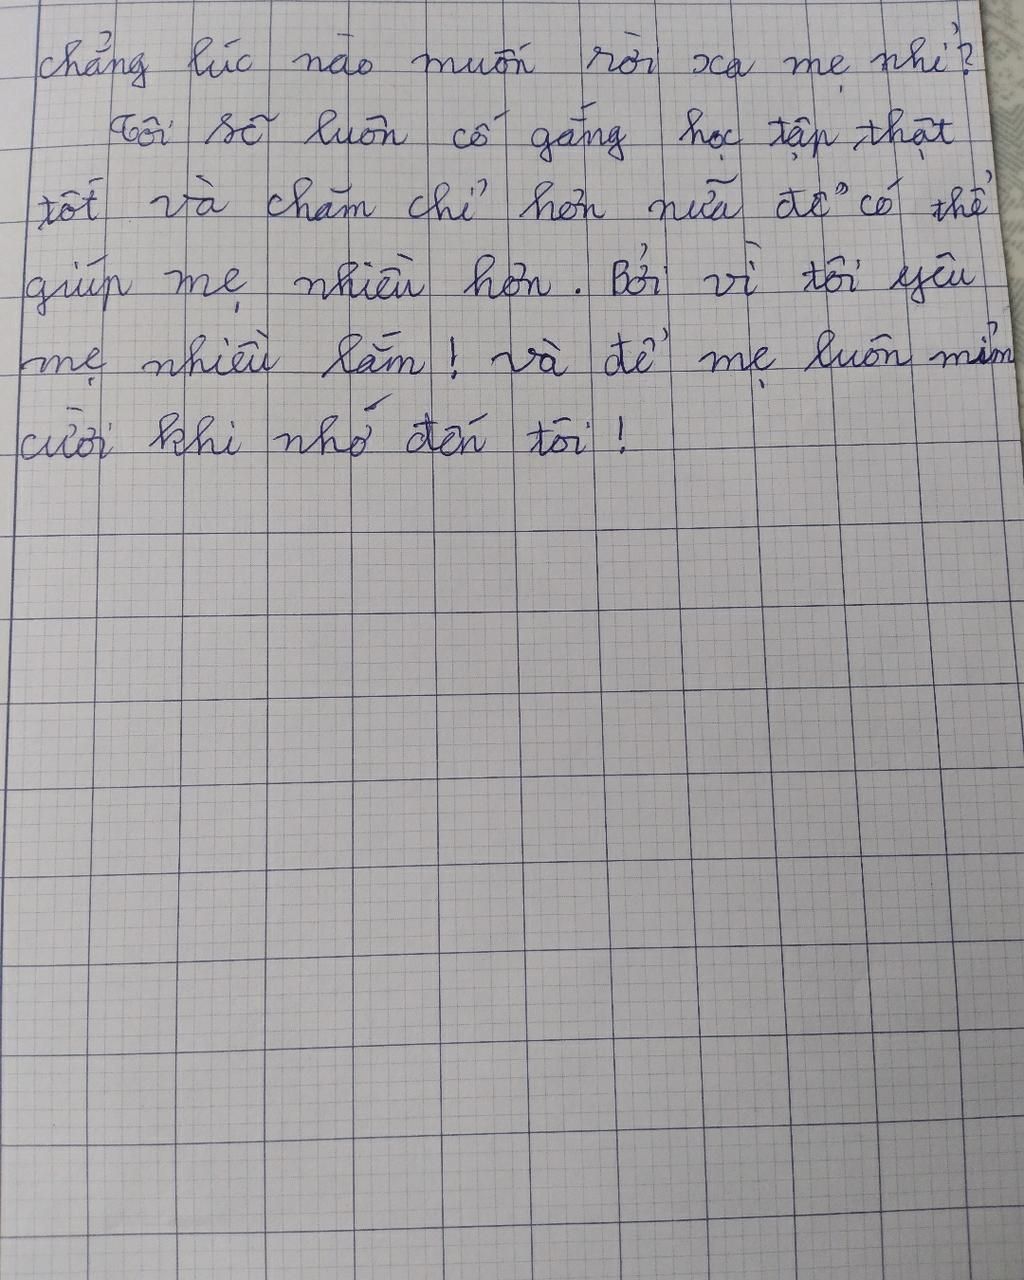 chẳng lúc nào muốn rời xa mẹ nhỉ?
Tôi sẽ luôn cố gắng học tập thật
tốt và chăm chỉ hơn nữa để có thể
giúp mẹ nhiều hơn. Bởi vì tôi yêu
mẹ nhiều lắm! và để mẹ luôn mỉm
cười khi nhớ đến tôi!